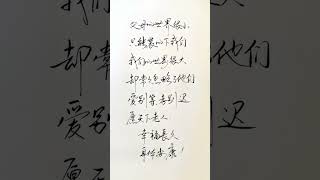 父母的世界很小
只能装的下我们
我们的世界很大
却常忽略了他们
爱别等 孝别迟
愿天下老人
幸福长久
身体安康！